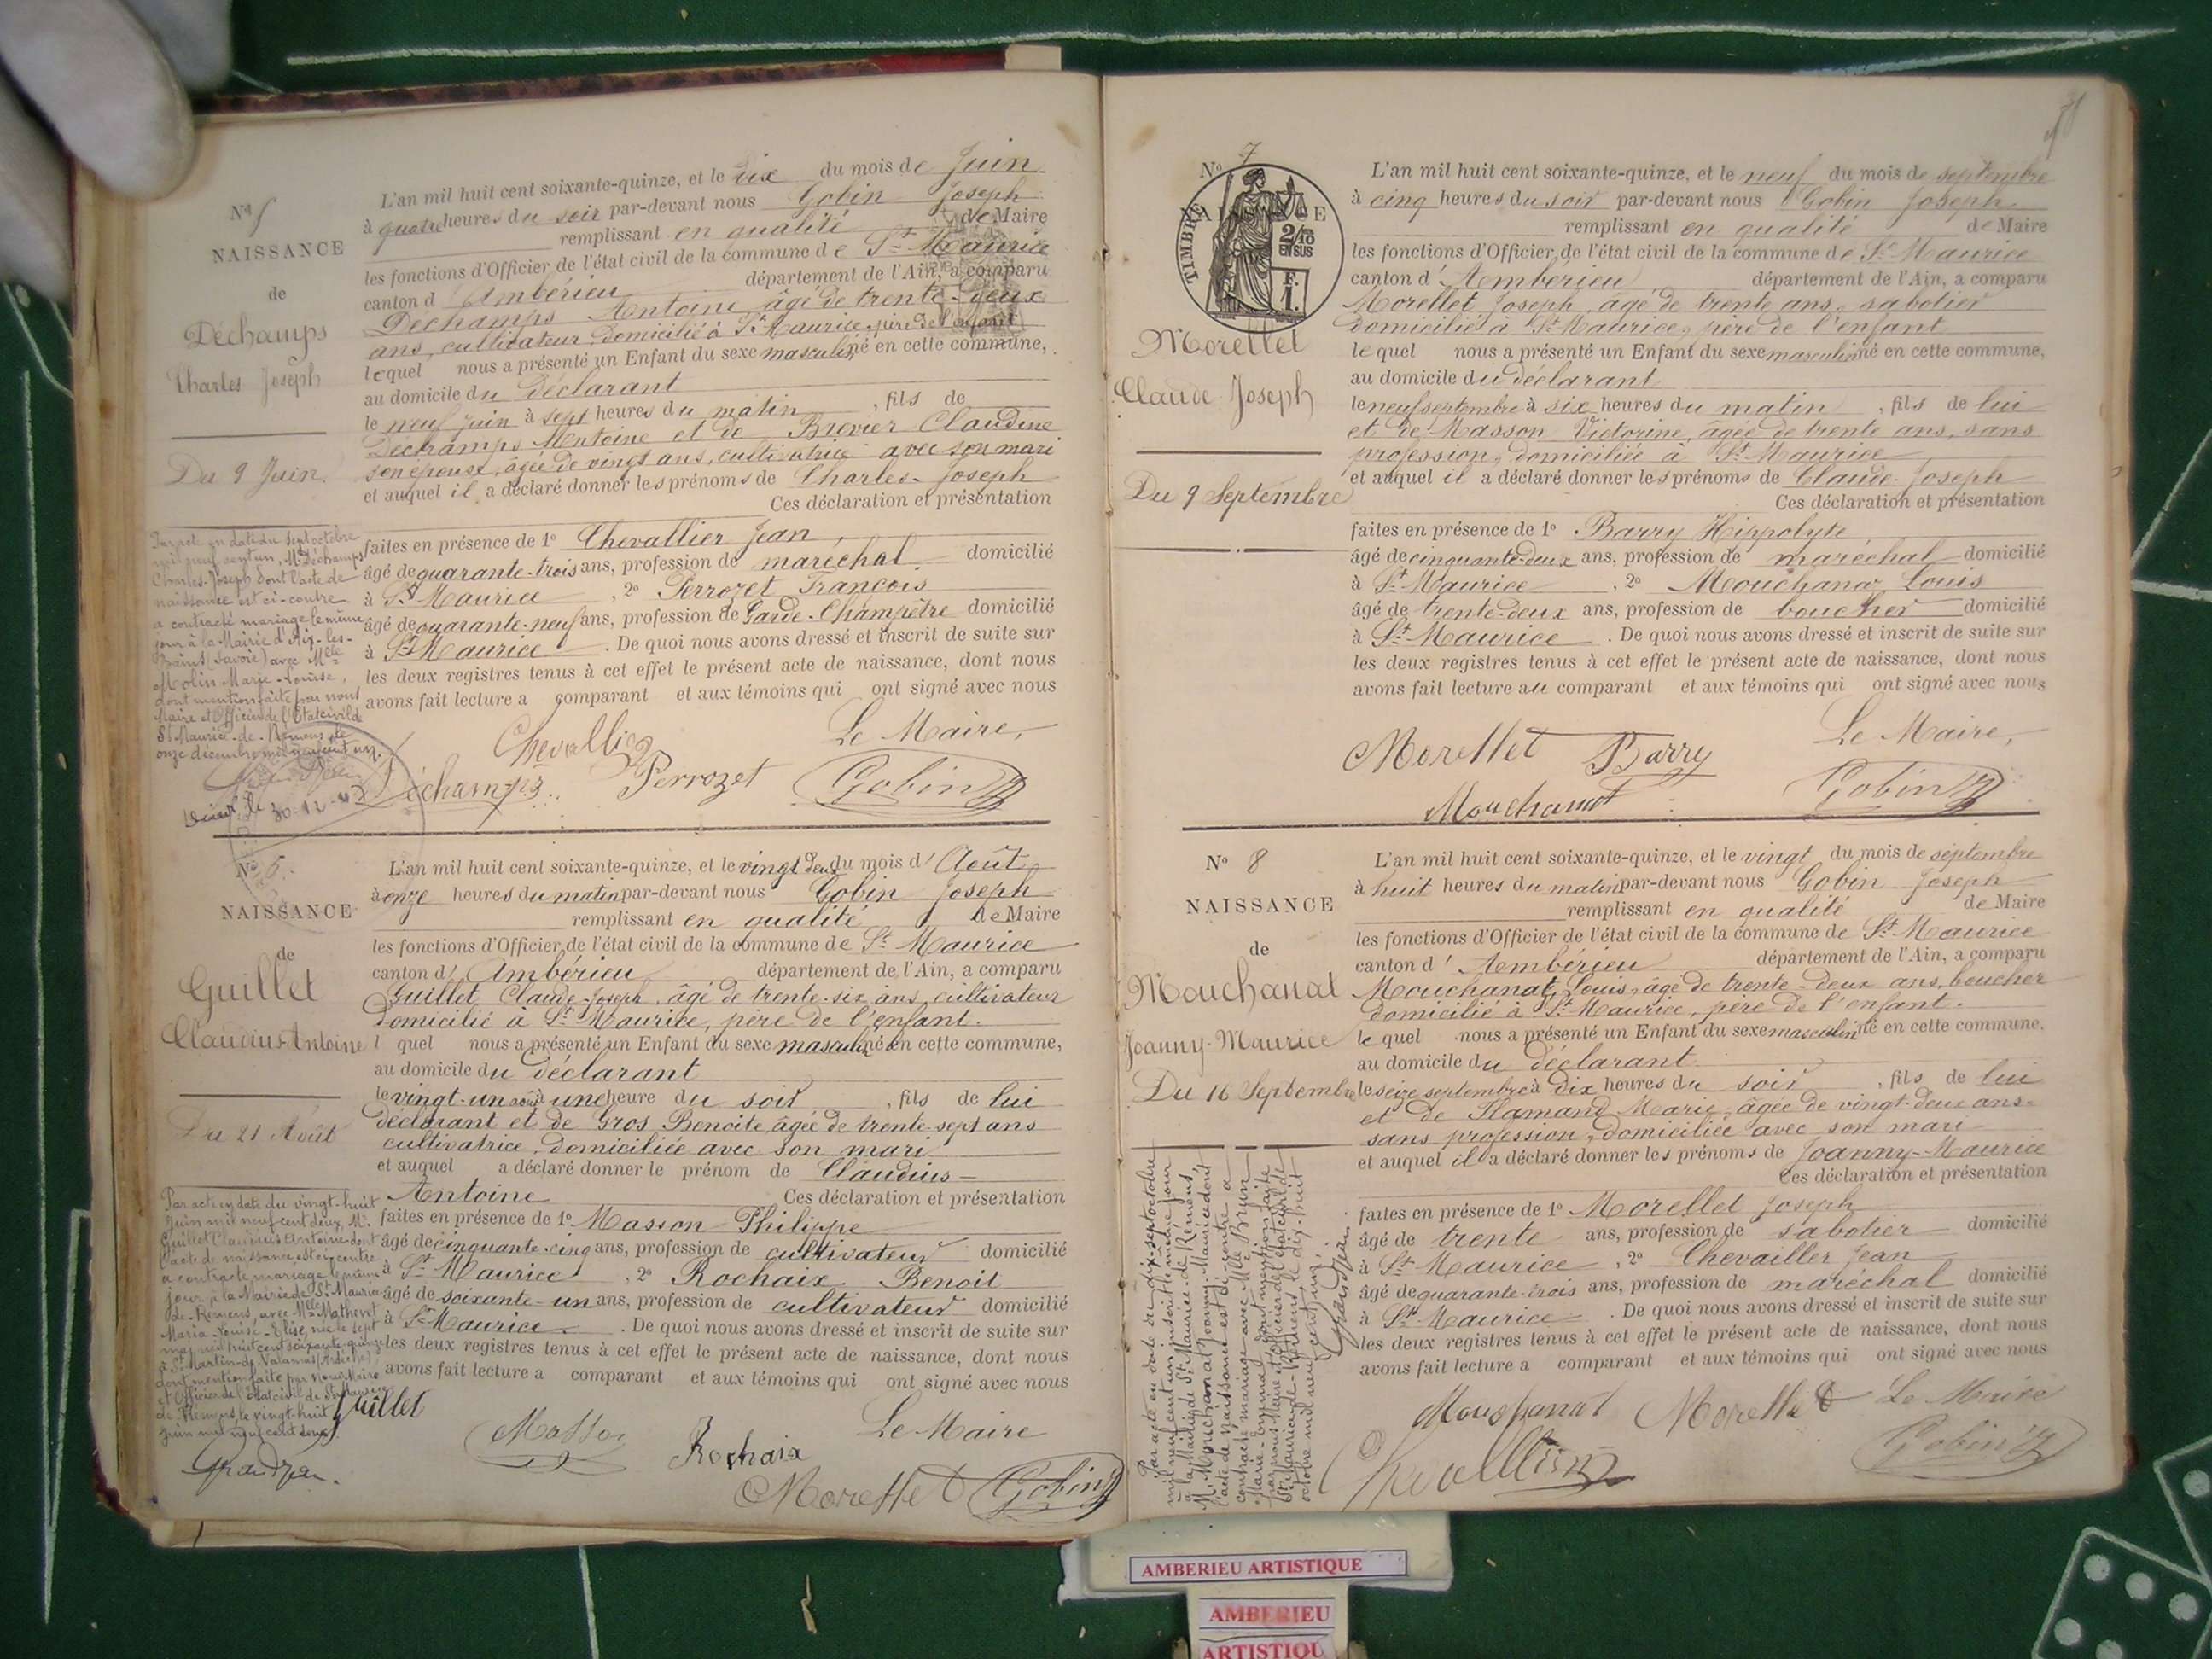 N° 5
NAISSANCE
de
Déchamps
Charles Joseph
Du 9 Juin
L'an mil huit cent soixante-quinze, et le dix du mois de Juin
à quatre heures du soir par-devant nous Gobin Joseph
remplissant en qualité de Maire
les fonctions d'Officier de l'état civil de la commune de St Maurice
canton d'Ambérieu département de l'Ain, a comparu
Déchamps Antoine âgé de trente-deux
ans, cultivateur, domicilié à St Maurice, père de l'enfant
lequel nous a présenté un Enfant du sexe masculin né en cette commune,
au domicile du déclarant
le neuf juin à sept heures du matin, fils de
Déchamps Antoine et de Brevier Claudine
son épouse, âgée de vingt ans, cultivatrice avec son mari
et auquel il a déclaré donner les prénoms de Charles-Joseph
Ces déclaration et présentation
faites en présence de 1° Chevallier Jean
âgé de quarante-trois ans, profession de maréchal domicilié
à St Maurice, 2° Perrozet François
âgé de quarante-neuf ans, profession de Garde-Champêtre domicilié
à St Maurice. De quoi nous avons dressé et inscrit de suite sur
les deux registres tenus à cet effet le présent acte de naissance, dont nous
avons fait lecture a comparant et aux témoins qui ont signé avec nous
Chevallier Le Maire,
Déchamps Perrozet Gobin
Par acte en date du sept octobre
mil neuf cent un, Mr Déchamps
Charles-Joseph dont l'acte de
naissance est ci-contre
a contracté mariage le même
jour à la Mairie d'Aix-les-
Bains (Savoie) avec Mlle
Molin Marie-Louise,
dont mention faite par nous
Maire et Officier de l'Etat civil de
St Maurice-de-Rémens le
onze décembre mil neuf cent un.
Décédé le 30-12-43
N° 6
NAISSANCE
de
Guillet
Claudius-Antoine
Du 21 Août
L'an mil huit cent soixante-quinze, et le vingt deux du mois d'Août
à onze heures du matin par-devant nous Gobin Joseph
remplissant en qualité de Maire
les fonctions d'Officier de l'état civil de la commune de St Maurice
canton d'Ambérieu département de l'Ain, a comparu
Guillet Claude-Joseph, âgé de trente-six ans, cultivateur
domicilié à St Maurice, père de l'enfant.
l quel nous a présenté un Enfant du sexe masculin né en cette commune,
au domicile du déclarant
le vingt-un août à une heure du soir, fils de lui
déclarant et de Gros Benoite, âgée de trente-sept ans
cultivatrice, domiciliée avec son mari
et auquel a déclaré donner le prénom de Claudius-
Antoine Ces déclaration et présentation
faites en présence de 1° Masson Philippe
âgé de cinquante-cinq ans, profession de cultivateur domicilié
à St Maurice, 2° Rochaix Benoit
âgé de soixante-un ans, profession de cultivateur domicilié
à St Maurice. De quoi nous avons dressé et inscrit de suite sur
les deux registres tenus à cet effet le présent acte de naissance, dont nous
avons fait lecture a comparant et aux témoins qui ont signé avec nous
Guillet Masson Rochaix Le Maire
Morellet Gobin
Par acte en date du vingt-huit
Juin mil neuf cent deux, Mr.
Guillet Claudius Antoine dont
l'acte de naissance est ci-contre
a contracté mariage le même
jour à la Mairie de St Maurice
de-Rémens, avec Mlle Mathevet
Maria-Louise-Elise, née le sept
mai mil huit cent soixante-quinze
à St Martin-de-Valamas (Ardèche)
dont mention faite par nous Maire
et Officier de l'Etat civil de St Maurice
de-Rémens le vingt-huit
juin mil neuf cent deux.
Grandjean.
N° 7
NAISSANCE
TIMBRE
2/10
EN SUS
F.
1.
Morellet
Claude Joseph
Du 9 Septembre
L'an mil huit cent soixante-quinze, et le neuf du mois de septembre
à cinq heures du soir par-devant nous Gobin Joseph
remplissant en qualité de Maire
les fonctions d'Officier de l'état civil de la commune de St Maurice
canton d'Amberieu département de l'Ain, a comparu
Morellet Joseph, âgé de trente ans, sabotier
domicilié à St Maurice, père de l'enfant
lequel nous a présenté un Enfant du sexe masculin né en cette commune,
au domicile du déclarant
le neuf septembre à six heures du matin, fils de lui
et de Masson Victorine, âgée de trente ans, sans
profession, domiciliée à St Maurice
et auquel il a déclaré donner les prénoms de Claude-Joseph
Ces déclaration et présentation
faites en présence de 1° Barry Hippolyte
âgé de cinquante-deux ans, profession de maréchal domicilié
à St Maurice, 2° Mouchanat Louis
âgé de trente-deux ans, profession de boucher domicilié
à St Maurice. De quoi nous avons dressé et inscrit de suite sur
les deux registres tenus à cet effet le présent acte de naissance, dont nous
avons fait lecture au comparant et aux témoins qui ont signé avec nous
Morellet Barry Le Maire,
Mouchanat Gobin
N° 8
NAISSANCE
de
Mouchanat
Joanny-Maurice
Du 16 Septembre
L'an mil huit cent soixante-quinze, et le vingt du mois de septembre
à huit heures du matin par-devant nous Gobin Joseph
remplissant en qualité de Maire
les fonctions d'Officier de l'état civil de la commune de St Maurice
canton d'Amberieu département de l'Ain, a comparu
Mouchanat Louis, âgé de trente-deux ans, boucher
domicilié à St Maurice, père de l'enfant.
lequel nous a présenté un Enfant du sexe masculin né en cette commune,
au domicile du déclarant
le seize septembre à dix heures du soir, fils de lui
et de Flamand Marie, âgée de vingt-deux ans
sans profession, domiciliée avec son mari
et auquel il a déclaré donner les prénoms de Joanny-Maurice
Ces déclaration et présentation
faites en présence de 1° Morellet Joseph
âgé de trente ans, profession de sabotier domicilié
à St Maurice, 2° Chevailler Jean
âgé de quarante-trois ans, profession de maréchal domicilié
à St Maurice. De quoi nous avons dressé et inscrit de suite sur
les deux registres tenus à cet effet le présent acte de naissance, dont nous
avons fait lecture a comparant et aux témoins qui ont signé avec nous
Mouchanat Morellet Le Maire
Chevallier Gobin
Par acte en date du dix-sept octobre
mil neuf cent un inscrit le même jour
à la Mairie de St Maurice-de-Rémens,
Mr Mouchanat Joanny-Maurice dont
l'acte de naissance est ci-contre a
contracté mariage avec Mlle Brun
Marie-Emma, dont mention faite
par nous Maire et Officier de l'Etat civil de
St Maurice-de-Rémens le dix-huit
octobre mil neuf cent un.
Grandjean
AMBERIEU ARTISTIQUE
AMBERIEU
ARTISTIQU